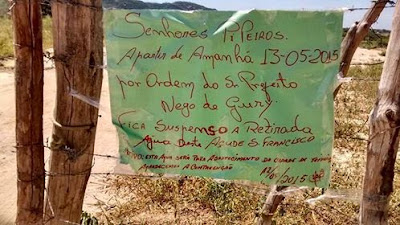 Senhores PiPeiros.
Apartir de Amanhã 13-05-2015
por Ordem do Sr Prefeito
Nego de Gury
Fica Suspenso a Retirada
Água Deste Açude S. Francisco
esta Água será Para Abastecimento da cidade de
Agradecemos a Compreenção
2015